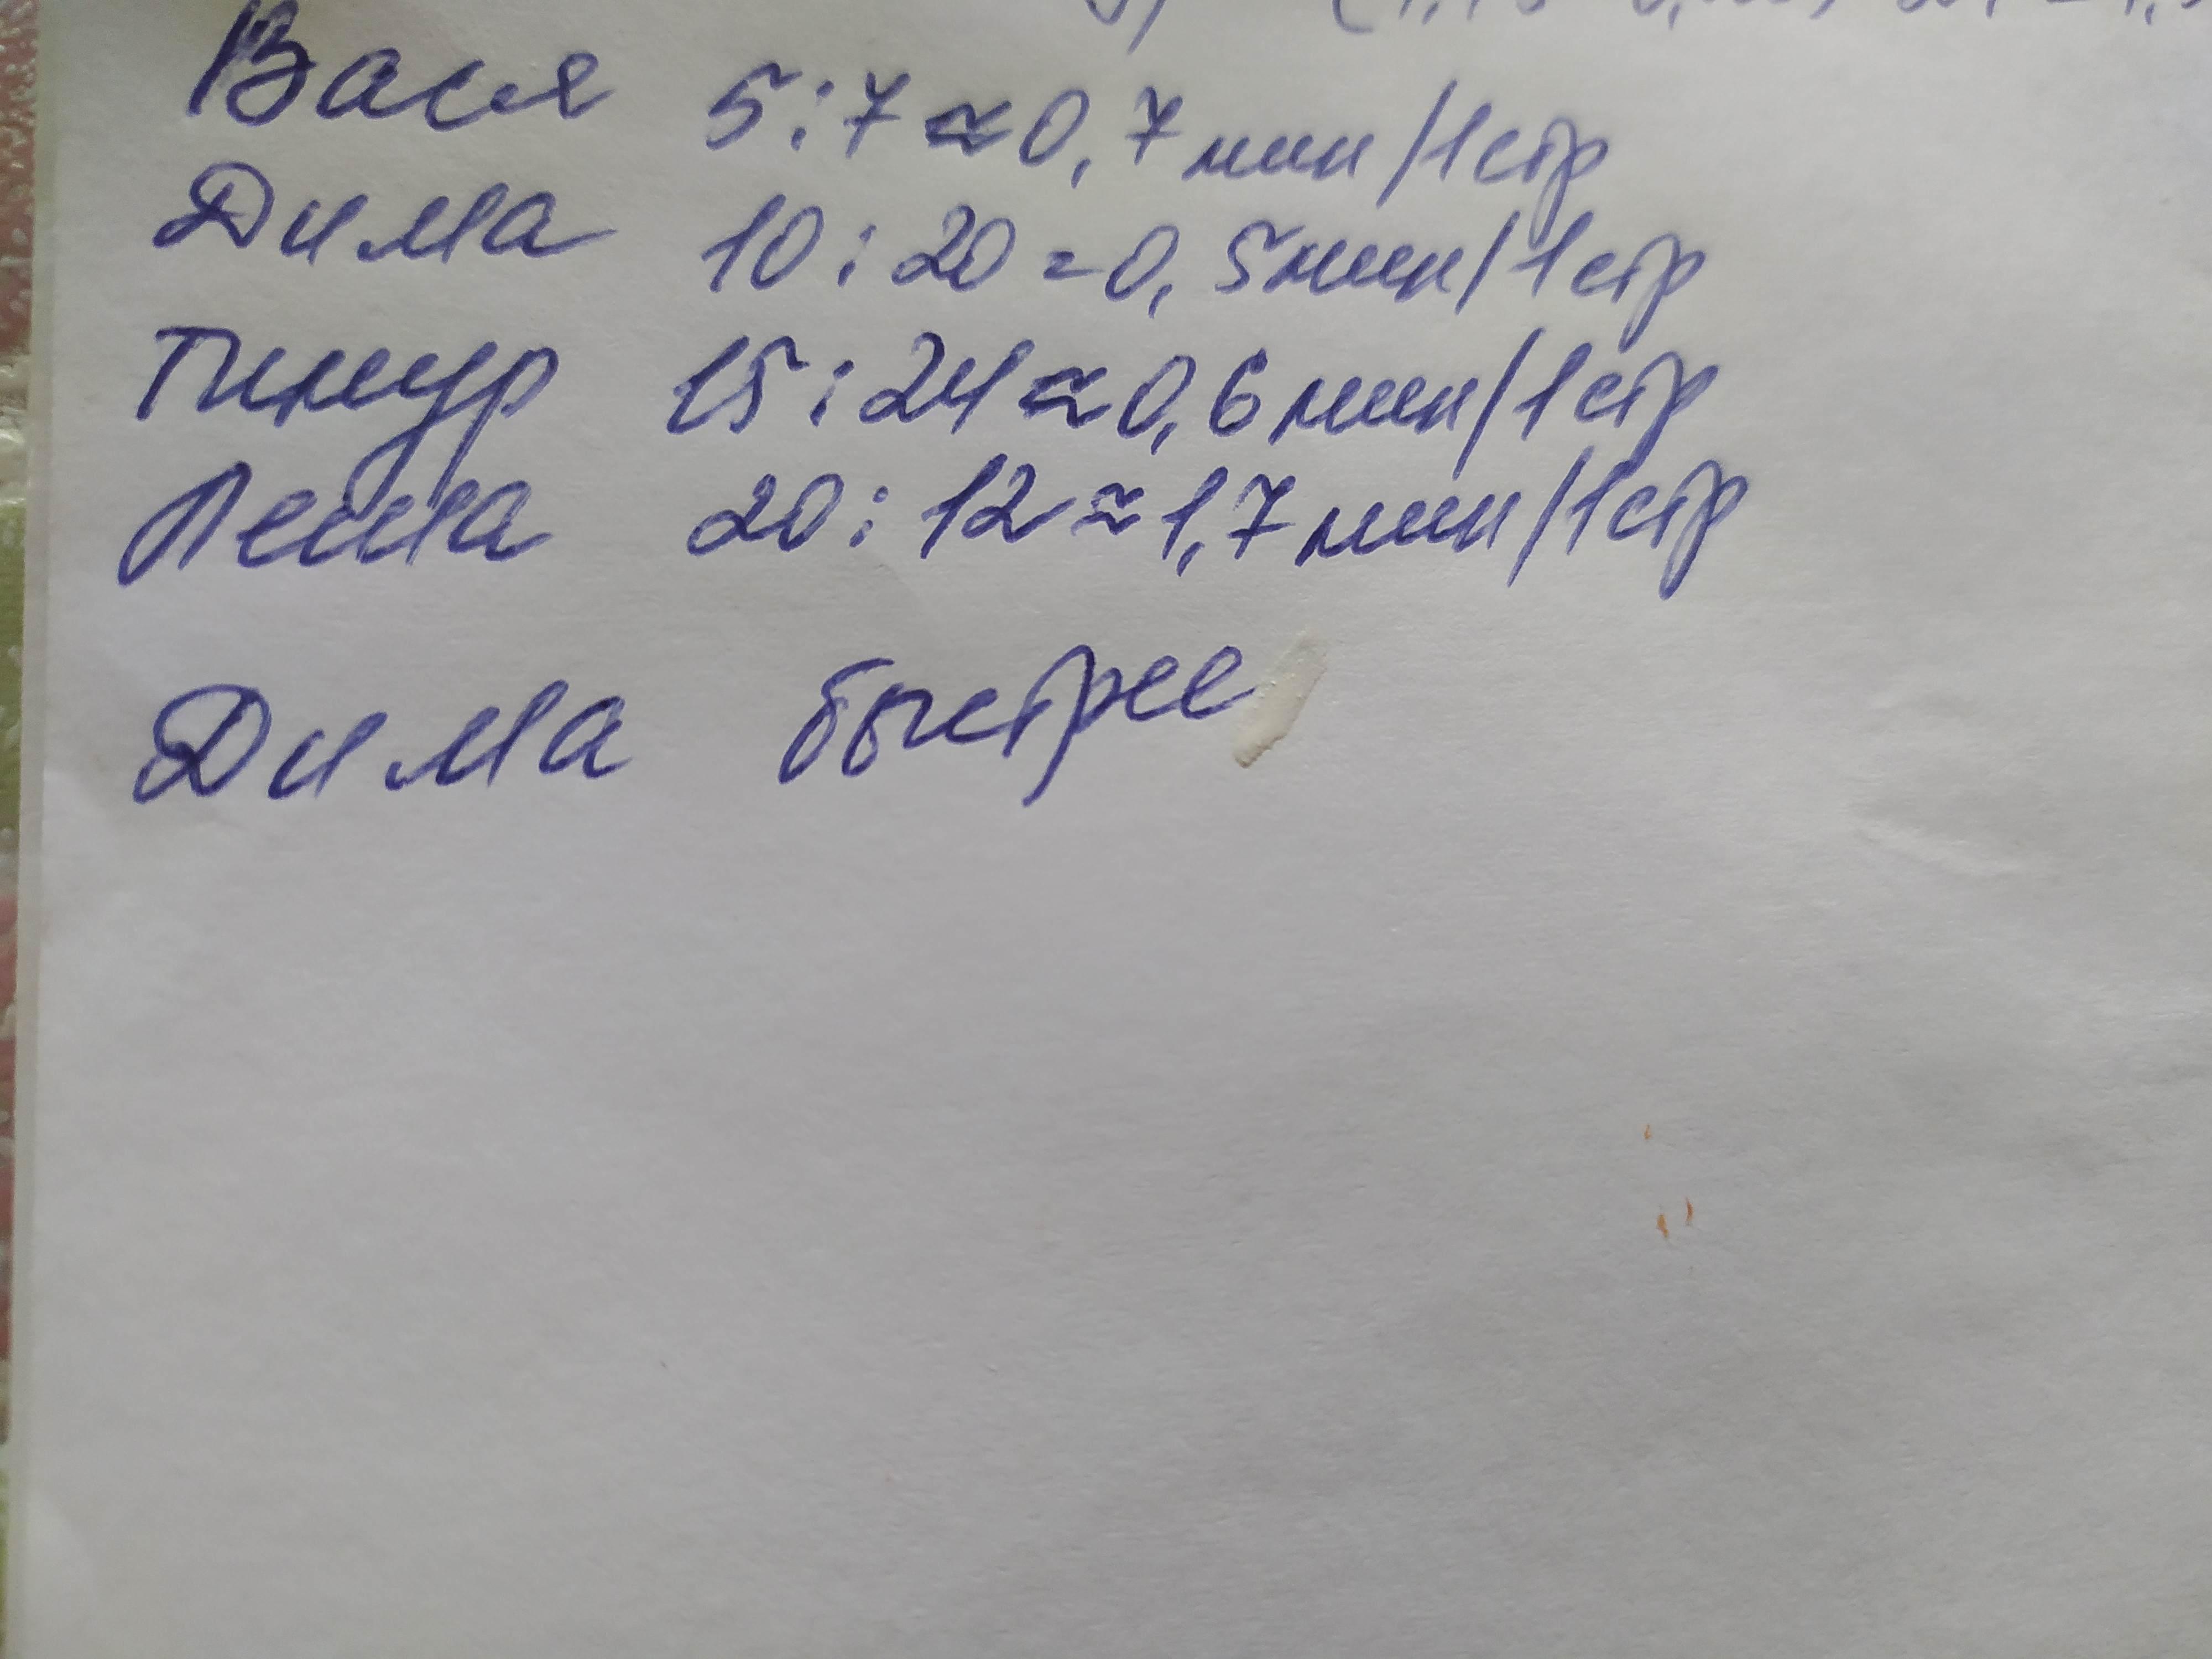 Вася 5:7≈0,7мин/1стр
Дима 10:20=0,5мин/1стр
Тимур 15:24≈0,6мин/1стр
Леша 20:12≈1,7мин/1стр
Дима быстрее